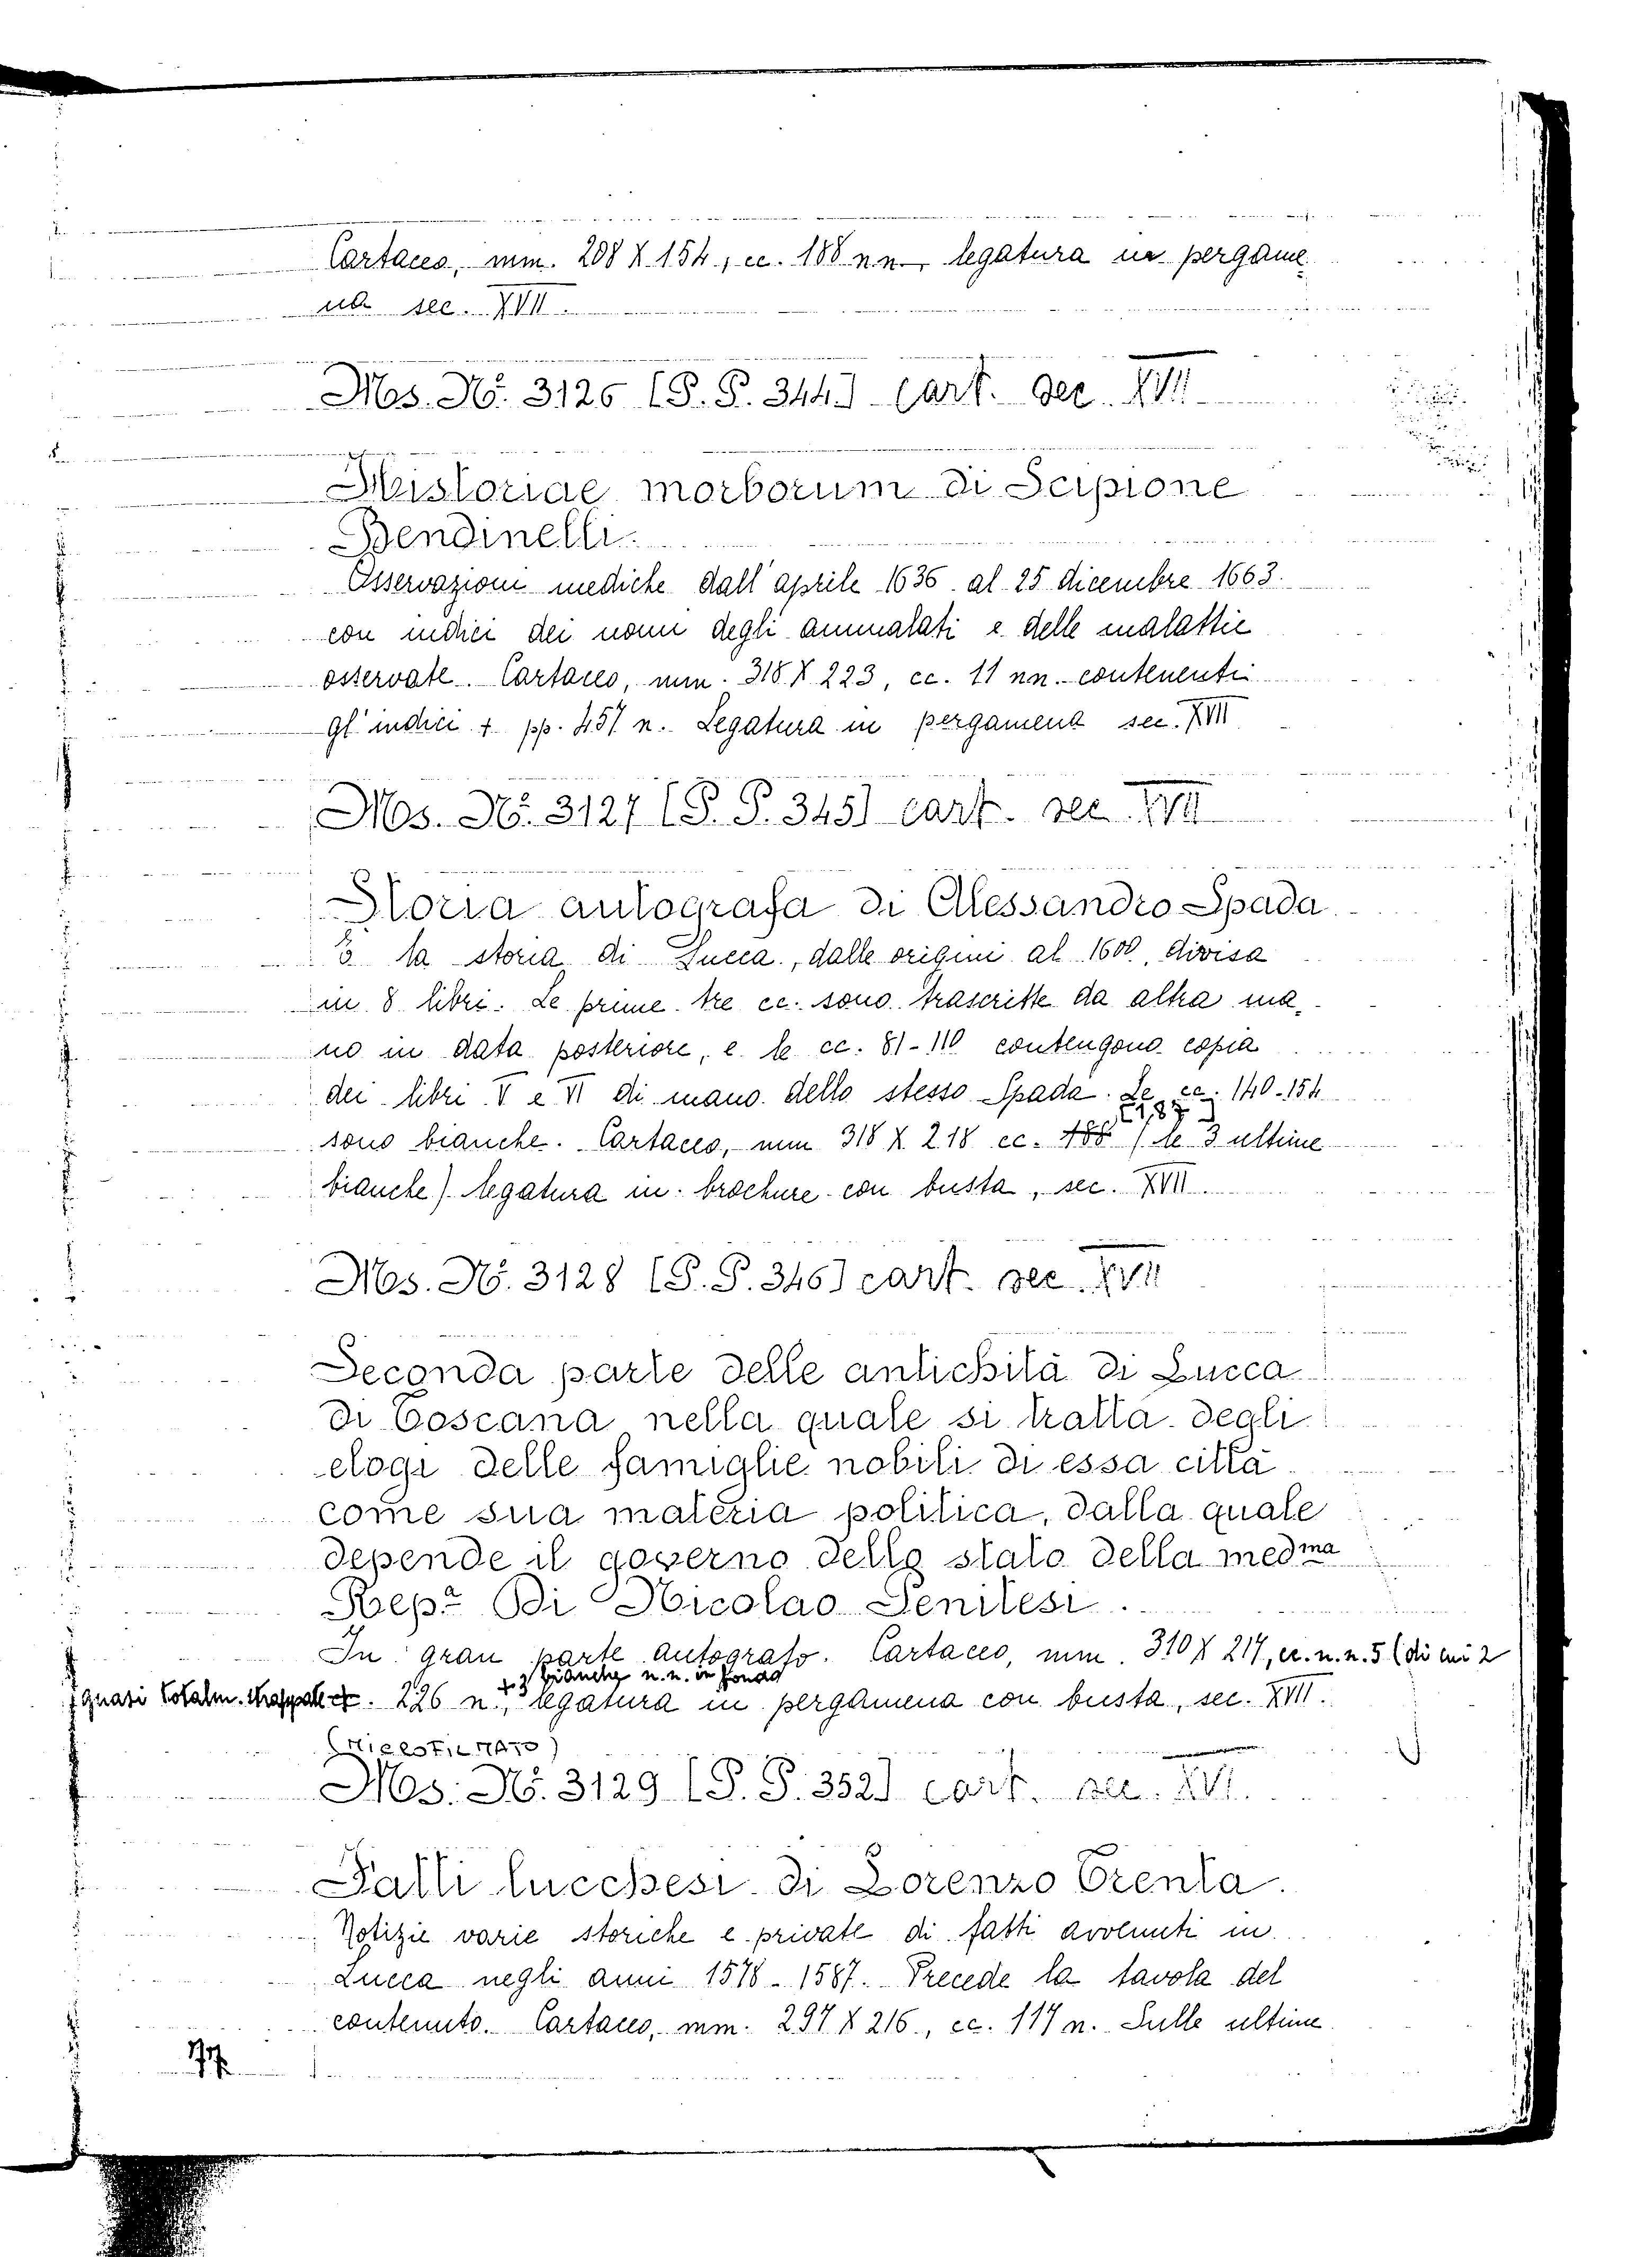 Cartaceo, mm. 208 X 154, cc. 188 n.n., legatura in pergame-
na sec. XVII.
Mos. No. 3126 [P. P. 344] cart. sec. XVII
Historiae morborum di Scipione
Bendinelli.
Osservazioni mediche dall'aprile 1636 al 25 dicembre 1663.
con indici dei nomi degli ammalati e delle malattie
osservate. Cartaceo, mm. 318 X 223, cc. 11 nn. contenenti
gl'indici + pp. 457 n. Legatura in pergamena sec. XVII
Mos. No. 3127 [P. P. 345] cart. sec. XVII
Storia autografa di Alessandro Spada
È la storia di Lucca, dalle origini al 1600, divisa
in 8 libri. Le prime tre cc. sono trascritte da altra ma-
no in data posteriore, e le cc. 81-110 contengono copia
dei libri V e VI di mano dello stesso Spada. Le cc. 140-154
[187]
sono bianche. Cartaceo, mm 318 X 218 cc. 188 (le 3 ultime
bianche) legatura in brochure con busta, sec. XVII.
Mos. No. 3128 [P. P. 346] cart. sec. XVII
Seconda parte delle antichità di Lucca
di Toscana nella quale si tratta degli
elogi delle famiglie nobili di essa città
come sua materia politica, dalla quale
depende il governo dello stato della medma
Repa Di Nicolao Penitesi.
In gran parte autografo. Cartaceo, mm. 310 X 217, cc. n.n. 5 (di cui 2
+3 bianche n.n. in fondo
quasi totalm. strappate cc. 226 n., legatura in pergamena con busta, sec. XVII.
(MICROFILMATO)
Mos. No. 3129 [P. P. 352] cart. sec. XVI.
Fatti lucchesi di Lorenzo Trenta.
Notizie varie storiche e private di fatti avvenuti in
Lucca negli anni 1578-1587. Precede la tavola del
contenuto. Cartaceo, mm. 297 X 216, cc. 117 n. Sulle ultime